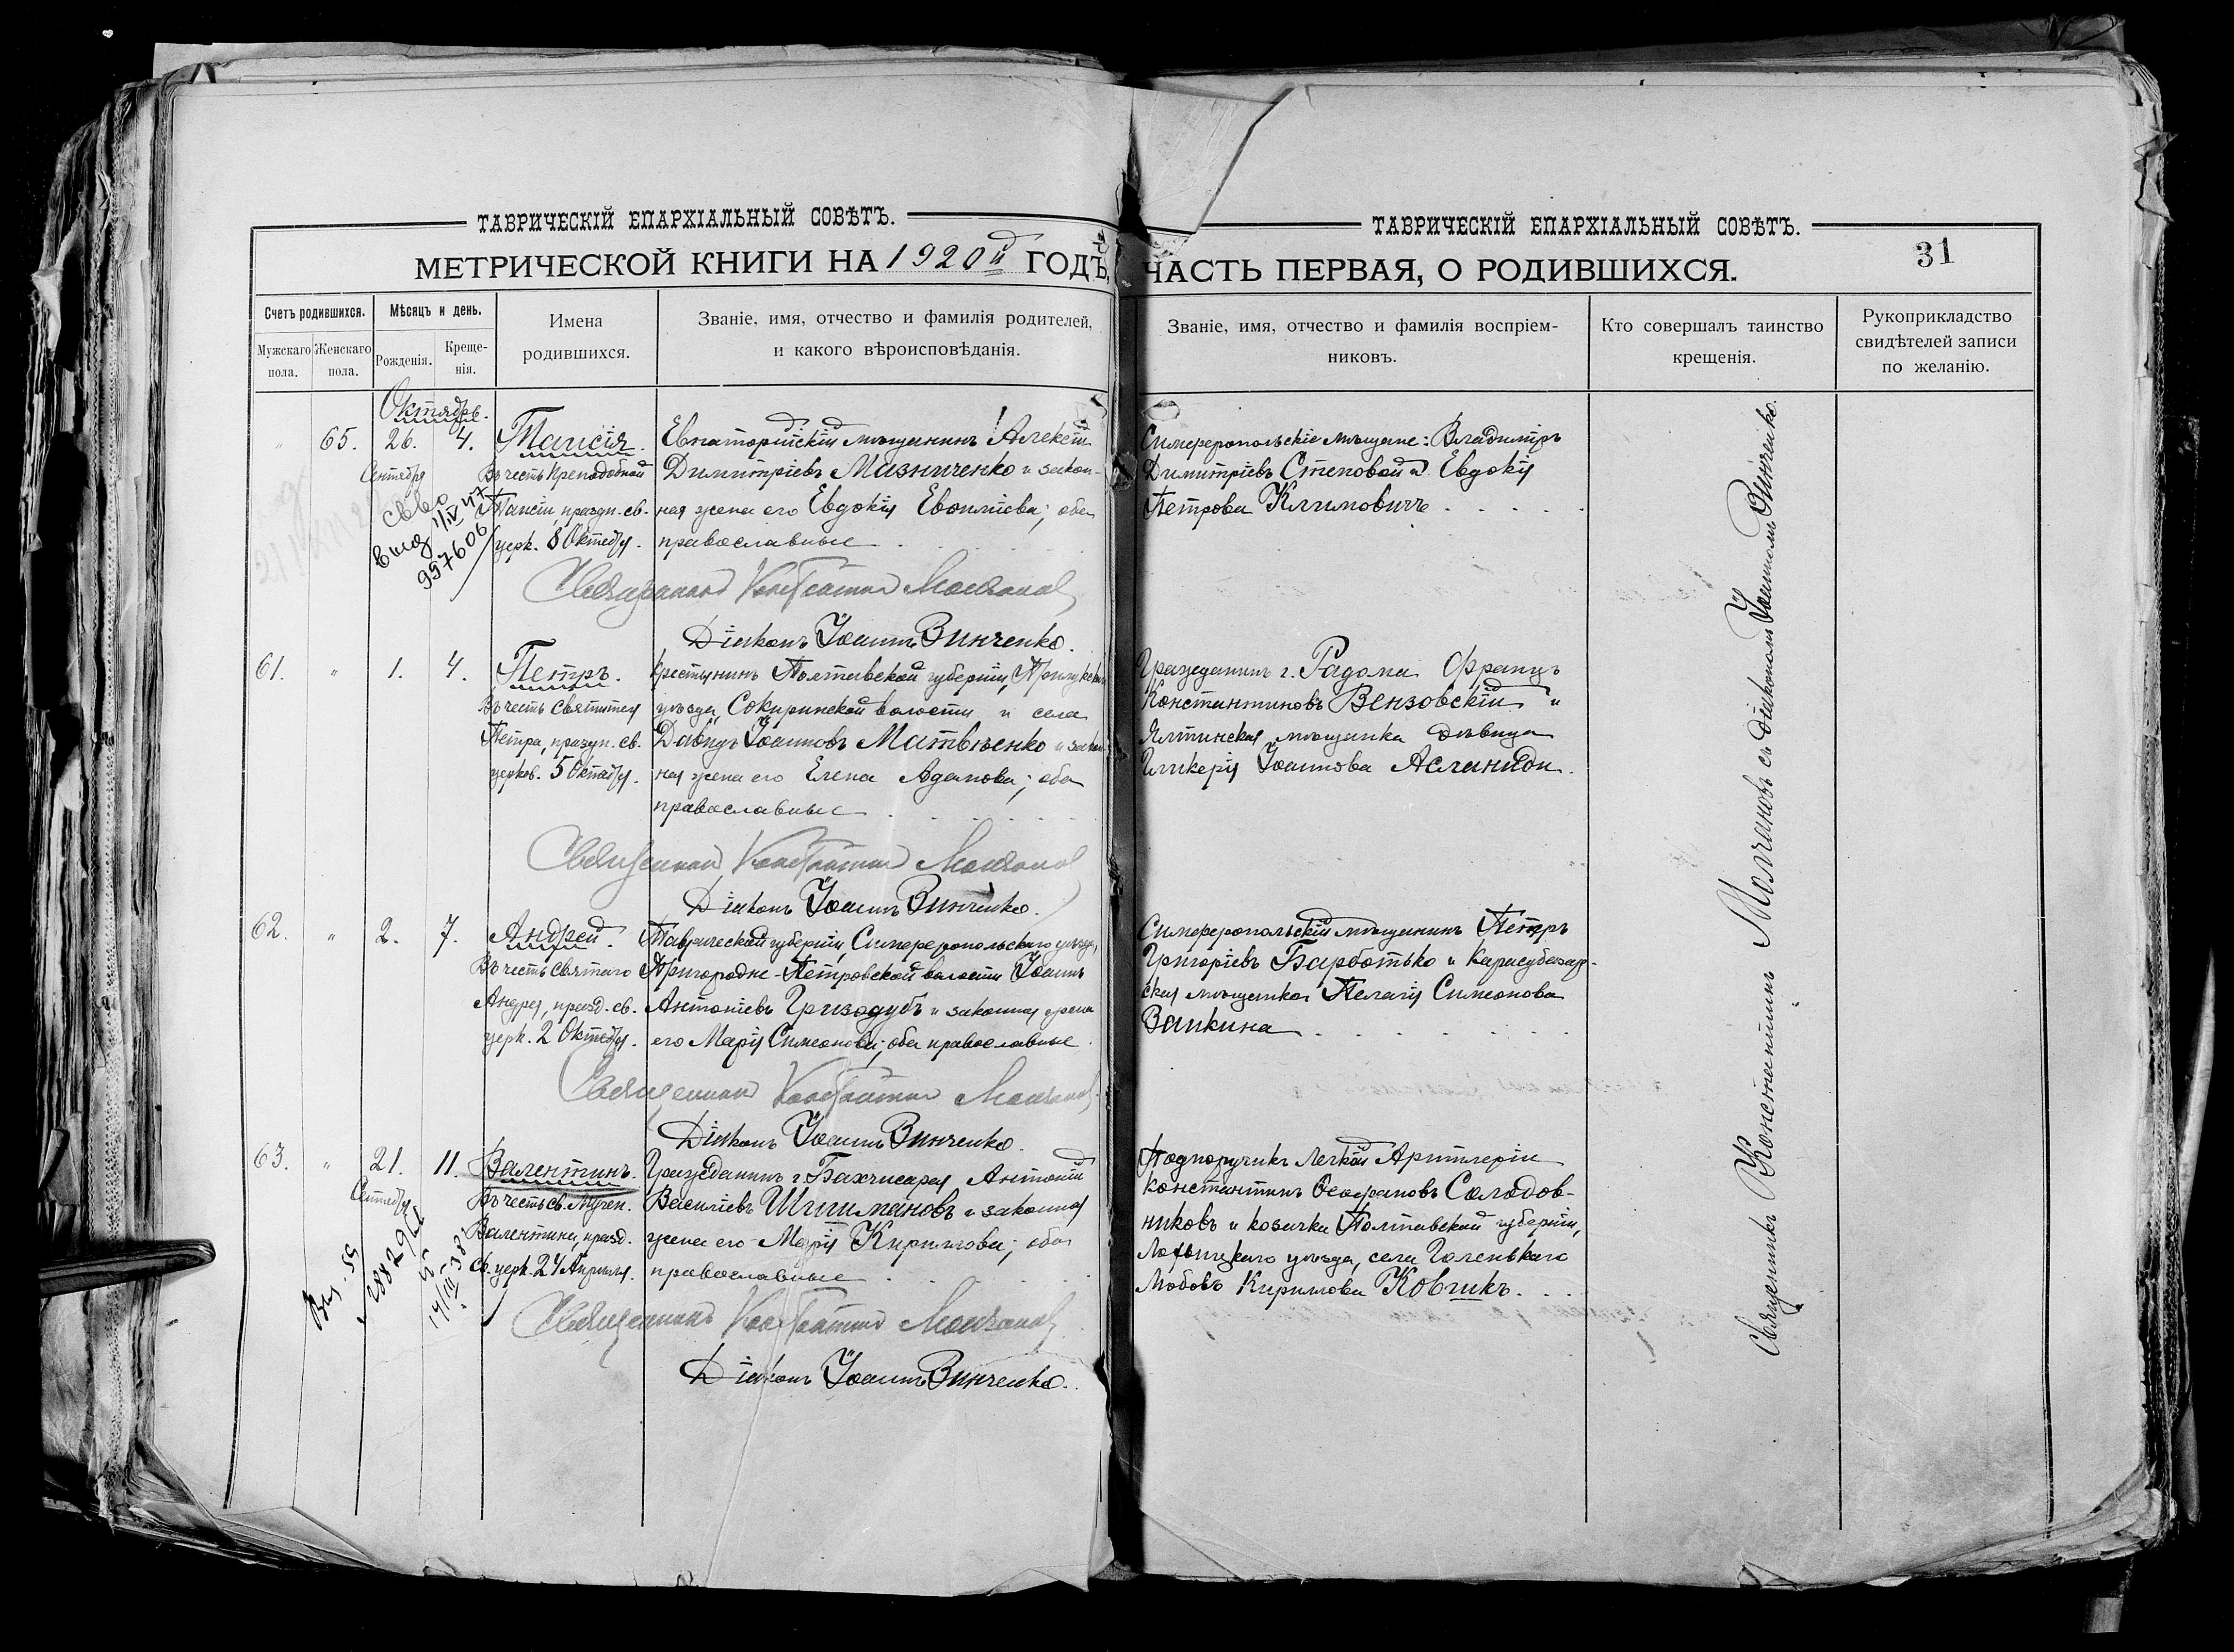 ТАВРИЧЕСКІЙ ЕПАРХІАЛЬНЫЙ СОВѢТЪ.
МЕТРИЧЕСКОЙ КНИГИ НА 1920й ГОДЪ,
Счетъ родившихся.
Мужскаго пола.
Женскаго пола.
Мѣсяцъ и день.
Рожденія.
Креще-
нія.
Имена
родившихся.
Званіе, имя, отчество и фамилія родителей,
и какого вѣроисповѣданія.
Октябрь.
" 65. 26. 4.
Сентября
Таисія.
Въ честь Преподобной
Таисіи, праздн. св.
церк. 8 Октября.
Евпаторійскій мѣщанинъ Алексѣй
Димитріевъ Мазниченко и закон-
ная жена его Евдокія Евѳиміева; оба
православные
св-во
выд 1/IV 47
957606
Священникъ Константинъ Молчановъ
Діаконъ Іоаннъ Винченко.
61. " 1. 4.
Петръ.
Въ честь Святителя
Петра, праздн. св.
церков. 5 Октября.
Крестьянинъ Полтавской губерніи, Прилукскаго
уѣзда, Сокиринской волости и села
Давидъ Іоанновъ Матвѣенко и закон-
ная жена его Елена Адамова; оба
православные
Священникъ Константинъ Молчановъ
Діаконъ Іоаннъ Винченко.
62. " 2. 7.
Андрей.
Въ честь Святаго
Андрея, празд. св.
церк. 2 Октября.
Таврической губерніи, Симферопольскаго уѣзда,
Пригородне-Петровской волости Іоаннъ
Антоніевъ Гризодубъ и законная жена
его Марія Симеонова; оба православные
Священникъ Константинъ Молчановъ
Діаконъ Іоаннъ Винченко.
63. " 21. 11.
Сентября
Валентинъ.
Въ честь св. Мучен.
Валентина, празд.
св. церк. 24 Апрѣля.
Гражданинъ г. Бахчисарая Антоній
Василіевъ Шишмановъ и законная
жена его Марія Кириллова; оба
православные
Священникъ Константинъ Молчановъ
Діаконъ Іоаннъ Винченко.
ТАВРИЧЕСКІЙ ЕПАРХІАЛЬНЫЙ СОВѢТЪ.
ЧАСТЬ ПЕРВАЯ, О РОДИВШИХСЯ.
31
Званіе, имя, отчество и фамилія воспріем-
никовъ.
Кто совершалъ таинство
крещенія.
Рукоприкладство
свидѣтелей записи
по желанію.
Симферопольскіе мѣщане: Владиміръ
Димитріевъ Степовой и Евдокія
Петрова Климовичъ
Гражданинъ г. Радома Францъ
Константиновъ Вензовскій и
Ялтинская мѣщанка дѣвица
Гликерія Іоаннова Асланиди.
Симферопольскій мѣщанинъ Петръ
Григоріевъ Барботько и Карасубазар-
ская мѣщанка Пелагія Симеонова
Ванкина
Подпоручикъ Легкой Артиллеріи
Константинъ Солодов-
никовъ и козачка Полтавской губерніи,
уѣзда, села Голенькаго
Любовь Кириллова Ковчикъ.
Священникъ Константинъ Молчановъ съ діакономъ Іоанномъ Винченко.